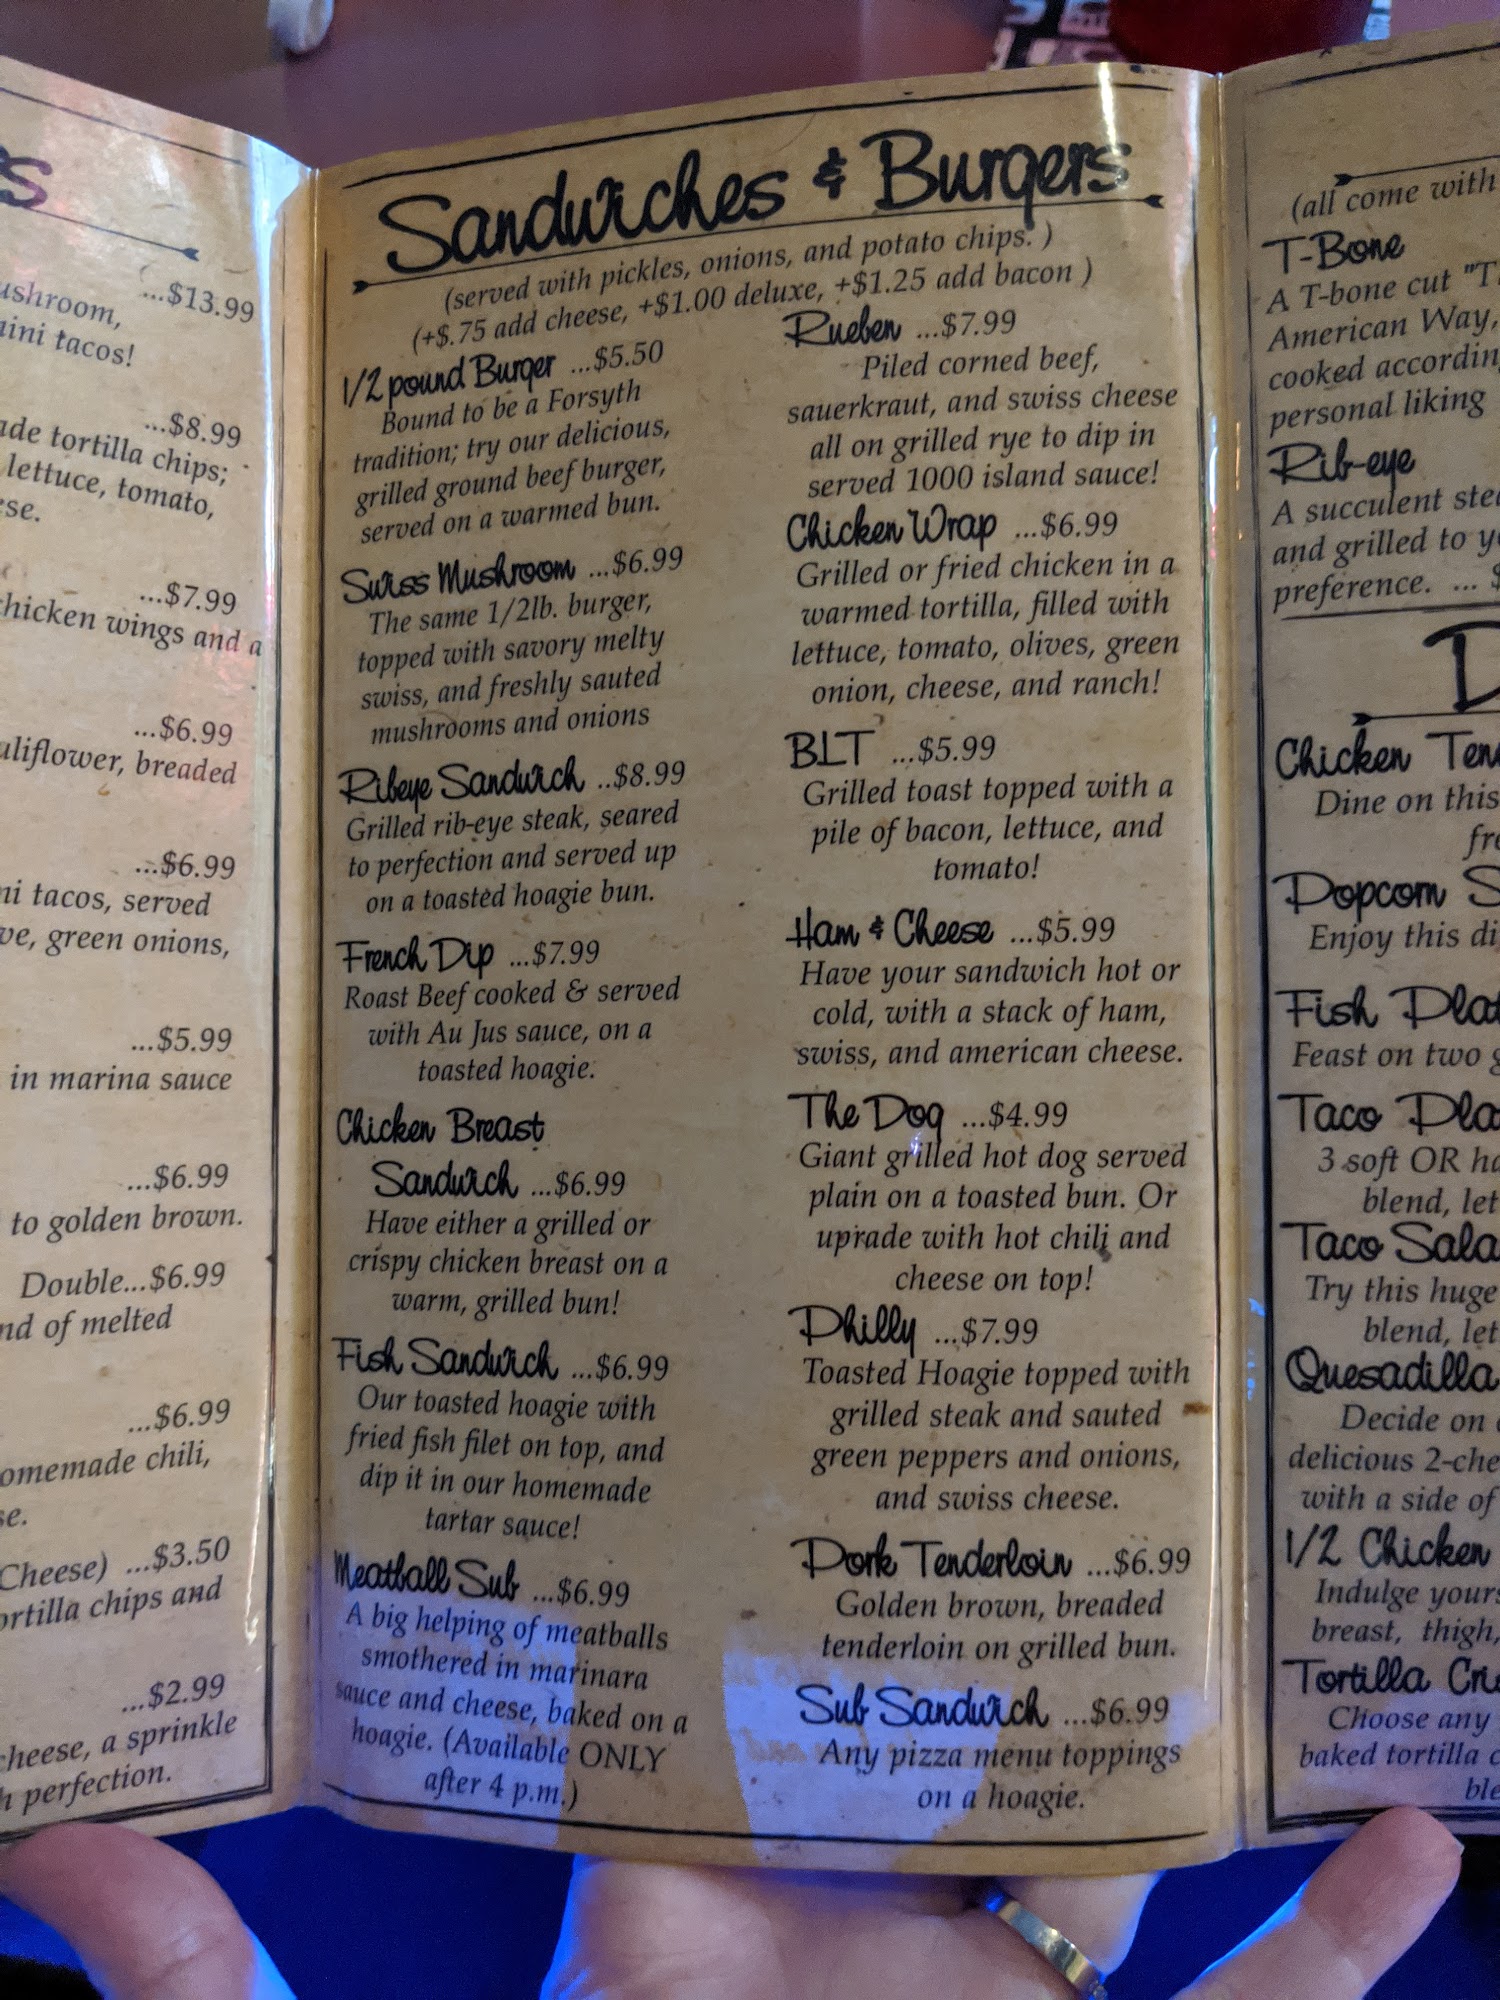 ...$13.99
mushroom,
mini tacos!
...$8.99
tortilla chips;
lettuce, tomato,
...$7.99
chicken wings and a
...$6.99
cauliflower, breaded
...$6.99
tacos, served
green onions,
...$5.99
in marina sauce
...$6.99
to golden brown.
Double...$6.99
of melted
...$6.99
homemade chili,
Cheese) ...$3.50
tortilla chips and
...$2.99
cheese, a sprinkle
perfection.
Sandwiches & Burgers
(served with pickles, onions, and potato chips. )
(+$.75 add cheese, +$1.00 deluxe, +$1.25 add bacon )
1/2 pound Burger ...$5.50
Bound to be a Forsyth
tradition; try our delicious,
grilled ground beef burger,
served on a warmed bun.
Swiss Mushroom ...$6.99
The same 1/2lb. burger,
topped with savory melty
swiss, and freshly sauted
mushrooms and onions
Ribeye Sandwich ..$8.99
Grilled rib-eye steak, seared
to perfection and served up
on a toasted hoagie bun.
French Dip ...$7.99
Roast Beef cooked & served
with Au Jus sauce, on a
toasted hoagie.
Chicken Breast
Sandwich ...$6.99
Have either a grilled or
crispy chicken breast on a
warm, grilled bun!
Fish Sandwich ...$6.99
Our toasted hoagie with
fried fish filet on top, and
dip it in our homemade
tartar sauce!
Meatball Sub ...$6.99
A big helping of meatballs
smothered in marinara
sauce and cheese, baked on a
hoagie. (Available ONLY
after 4 p.m.)
Rueben ...$7.99
Piled corned beef,
sauerkraut, and swiss cheese
all on grilled rye to dip in
served 1000 island sauce!
Chicken Wrap ...$6.99
Grilled or fried chicken in a
warmed tortilla, filled with
lettuce, tomato, olives, green
onion, cheese, and ranch!
BLT ...$5.99
Grilled toast topped with a
pile of bacon, lettuce, and
tomato!
Ham & Cheese ...$5.99
Have your sandwich hot or
cold, with a stack of ham,
swiss, and american cheese.
The Dog ...$4.99
Giant grilled hot dog served
plain on a toasted bun. Or
uprade with hot chili and
cheese on top!
Philly ...$7.99
Toasted Hoagie topped with
grilled steak and sauted
green peppers and onions,
and swiss cheese.
Pork Tenderloin ...$6.99
Golden brown, breaded
tenderloin on grilled bun.
Sub Sandwich ...$6.99
Any pizza menu toppings
on a hoagie.
(all come with
T-Bone
A T-bone cut "T
American Way,
cooked according
personal liking
Rib-eye
A succulent
and grilled to
preference. ... $
Chicken
Dine on this
Popcorn
Enjoy this
Fish
Feast on two
Taco
3 soft OR
blend,
Taco
Try this huge
blend,
Quesadilla
Decide on
delicious
with a side of
1/2 Chicken
Indulge
breast, thigh,
Tortilla
Choose any
baked tortilla